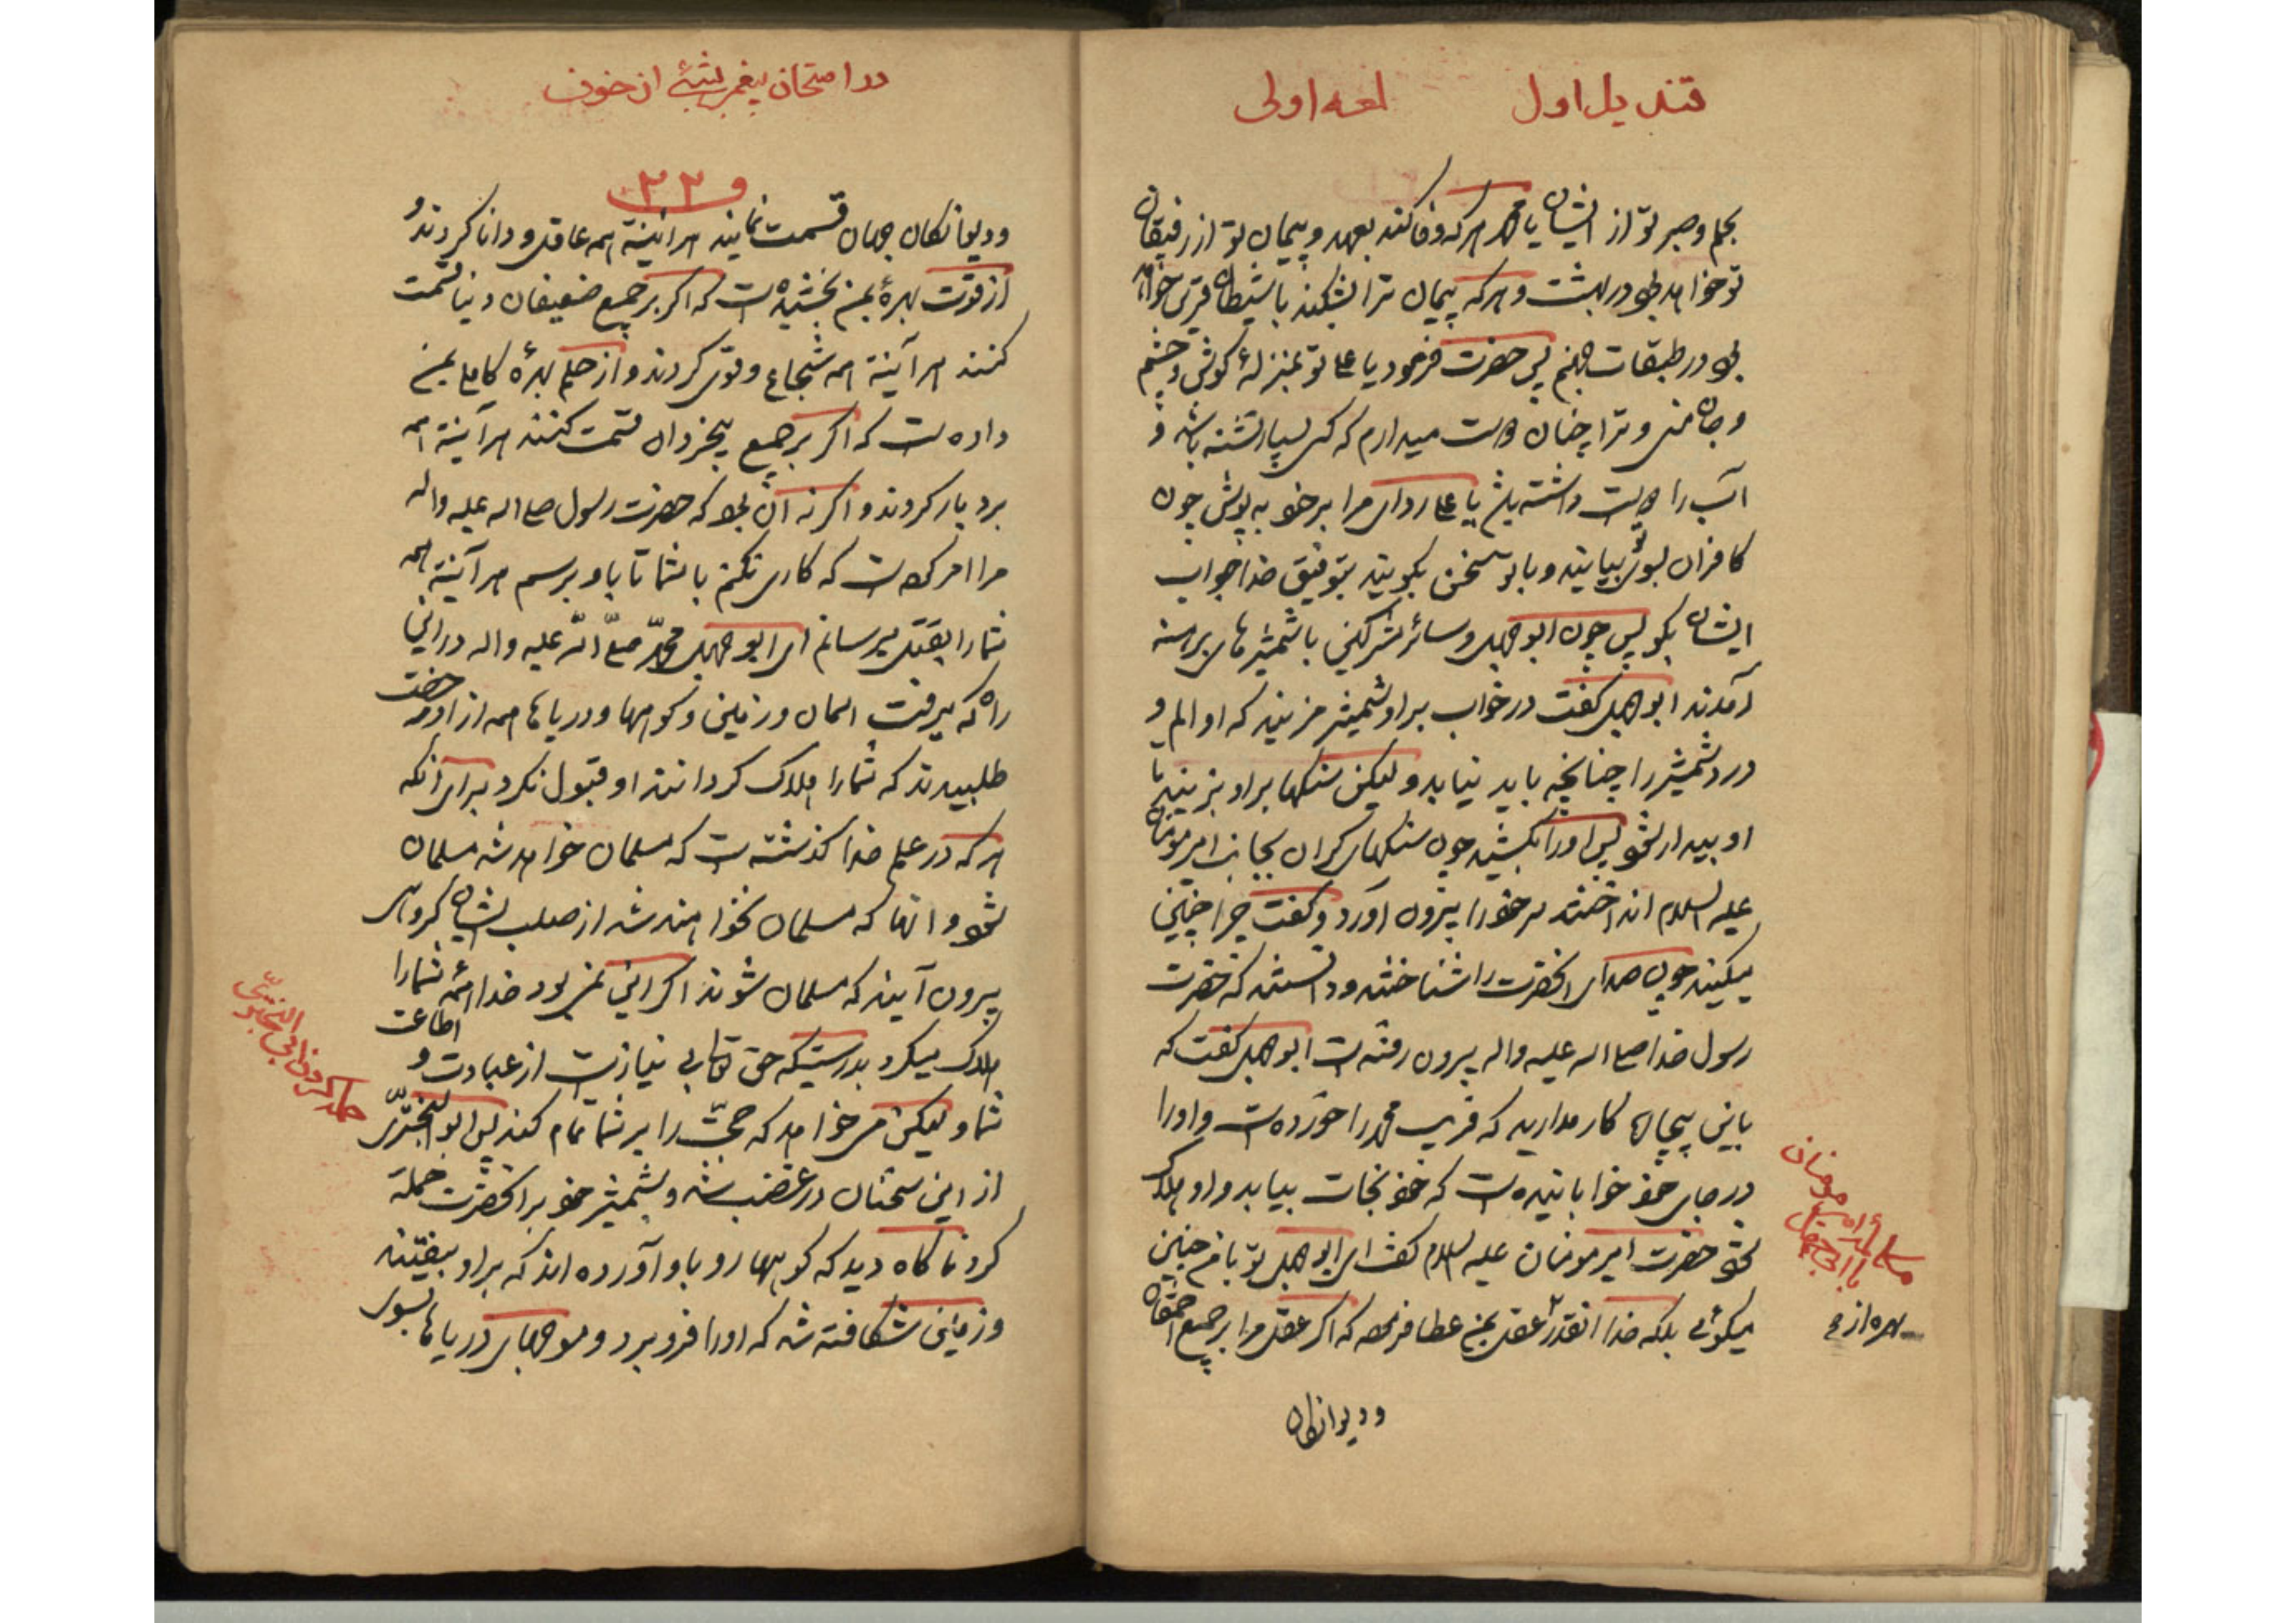 قندیل اول لمعه اولی
بحلم و صبر تو از ایشان یا محمد هر که وفا کند بعهد و پیمان تو از رفیقان
تو خواهد بود در بهشت و هر که پیمان ترا بشکند با شیطان قرین خواهد
بود در طبقات جهنم پس حضرت فرمود یا علی تو بمنزلهٔ گوش و چشم
و جان منی و ترا چنان دوست میدارم که کسی بسیار تشنه باشد و
آب را دوست داشته باشد یا علی ردای مرا بر خود بپوش چون
کافران بسوی تو بیایند و با تو سخن بگویند بتوفیق خدا جواب
ایشان بگو پس چون ابو جهل و سائر مشرکین با شمشیرهای برهنه
آمدند ابو جهل گفت در خواب بر او شمشیر مزنید که او الم و
درد شمشیر را چنانچه باید نیابد ولیکن سنگها بر او بزنید تا
او بیدار شود پس او را بکشید چون سنگهای گران بجانب امیر مومنان
علیه السلام انداختند سر خود را بیرون آورد و گفت چرا چنین
میکنید چون صدای آنحضرت را شناختند و دانستند که حضرت
رسول خدا صلی اله علیه واله بیرون رفته است ابو جهل گفت که
باین بیچاره کار مدارید که فریب محمد را خورده است و او را
در جای خود خوابانیده است که خود نجات بیابد و او هلاک
شود حضرت امیر مومنان علیه السلام گفت ای ابو جهل تو بامن چنین
میگوئی بلکه خدا انقدر عقل بمن عطا فرموده که اگر عقل مرا بر جمیع احمقان
و دیوانکان
بهره از
در امتحان پیغمبر شبی از خوف
و ۲۲
و دیوانکان جهان قسمت نمایند هر اینه همه عاقل و دانا کردند و
از قوت بهرهٔ بمن بخشیده است که اگر بر جمیع ضعیفان دنیا قسمت
کنند هر آینه همه شجاع و قوی کردند و از حلم بهرهٔ کامل بمن
داده است که اگر بر جمیع بیخردان قسمت کنند هر آینه همه
بردبار کردند و اگر نه آن بود که حضرت رسول صلی اله علیه واله
مرا امر کرده است که کاری نکنم با شما تا باو برسم هر آینه همه
شما را بقتل میرسانم ای ابو جهل محمد صلی الله علیه واله در این
راه که میرفت آسمان و زمین و کوهها و دریاها همه از او رخصت
طلبیدند که شما را هلاک کردانند او قبول نکرد برای آنکه
هر که در علم خدا گذشته است که مسلمان خواهد شد مسلمان
شود و آنها که مسلمان نخواهند شد از صلب ایشان کروهی
بیرون آیند که مسلمان شوند اگر این نمی بود خدا همه شما را
هلاک میکرد بدرستیکه حق تعالی بی نیاز است از عبادت و اطاعت
شما و لیکن میخواهد که حجت را بر شما تمام کند پس ابو البختری
از این سخنان در غضب شد و بشمشیر خود بر آنحضرت حمله
کرد ناگاه دید که کوهها رو باو آورده اند که بر او بیفتند
و زمین شکافته شد که او را فرو برد و موجهای دریاها بسوی